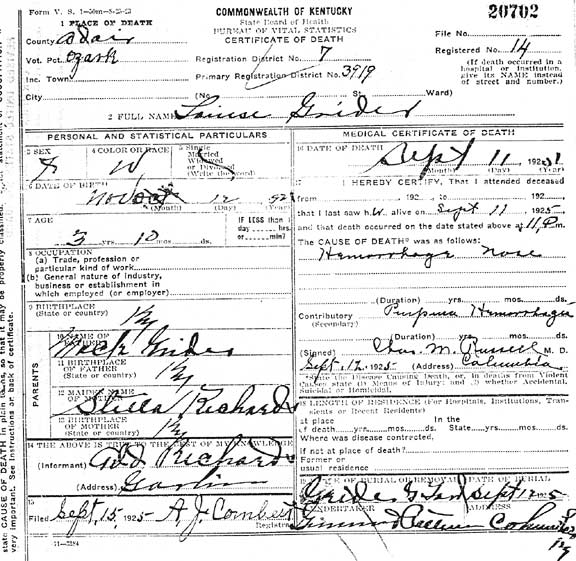 Form V. S. 1-50m-8-23-23
COMMONWEALTH OF KENTUCKY
20702
1 PLACE OF DEATH
State Board of Health
BUREAU OF VITAL STATISTICS
CERTIFICATE OF DEATH
File No.
County Adair
Vot. Pct. Ozark
Registration District No. 7
Registered No. 14
Inc. Town
Primary Registration District No. 3919
(If death occurred in a
hospital or institution,
give its NAME instead
of street and number.)
City (No. St Ward)
2 FULL NAME Louise Grider
PERSONAL AND STATISTICAL PARTICULARS
3 SEX F
4 COLOR OR RACE W
5 Single
Married
Widowed
or Divorced
(Write the word)
6 DATE OF BIRTH
Nov 12
(Month) (Day) (Year)
7 AGE
3 yrs. 10 mos. ds.
IF LESS than 1
day hrs.
or min?
8 OCCUPATION
(a) Trade, profession or
particular kind of work
(b) General nature of industry,
business or establishment in
which employed (or employer)
9 BIRTHPLACE
(State or country) Ky
PARENTS
10 NAME OF
FATHER Mack Grider
11 BIRTHPLACE
OF FATHER
(State or country) Ky
12 MAIDEN NAME
OF MOTHER Stella Richards
13 BIRTHPLACE
OF MOTHER
(State or country) Ky
14 THE ABOVE IS TRUE TO THE BEST OF MY KNOWLEDGE
(Informant) Richards
(Address) Garlin
15
Filed Sept. 15, 1925 A. J. Combest
Registrar
11-3184
MEDICAL CERTIFICATE OF DEATH
16 DATE OF DEATH
Sept 11 192
(Month) (Day) (Year)
17 I HEREBY CERTIFY, That I attended deceased
from 192 to 192
that I last saw h alive on Sept 11 1925
and that death occurred on the date stated above at 11 P m.
The CAUSE OF DEATH* was as follows:
Hemorrhage Nose
(Duration) yrs. mos. ds.
Contributory Purpura Hemorrhagic
(Secondary)
(Duration) yrs. mos. ds.
(Signed) Chas. M. Russell M. D.
Sept. 12, 1925 (Address) Columbia
*State the Disease Causing Death, or, in deaths from Violent
Causes state (1) Means of Injury; and (2) whether Accidental,
Suicidal or Homicidal.
18 LENGTH OF RESIDENCE (For Hospitals, Institutions, Transients
or Recent Residents)
At place In the
of death yrs. mos. ds. State yrs. mos. ds.
Where was disease contracted,
if not at place of death?
Former or
usual residence
19 PLACE OF BURIAL OR REMOVAL DATE OF BURIAL
Grider G Yard Sept 12 25
UNDERTAKER ADDRESS
Columbia
Ky
state CAUSE OF DEATH in plain terms, so that it may be properly classified.
very important. See instructions on back of certificate.